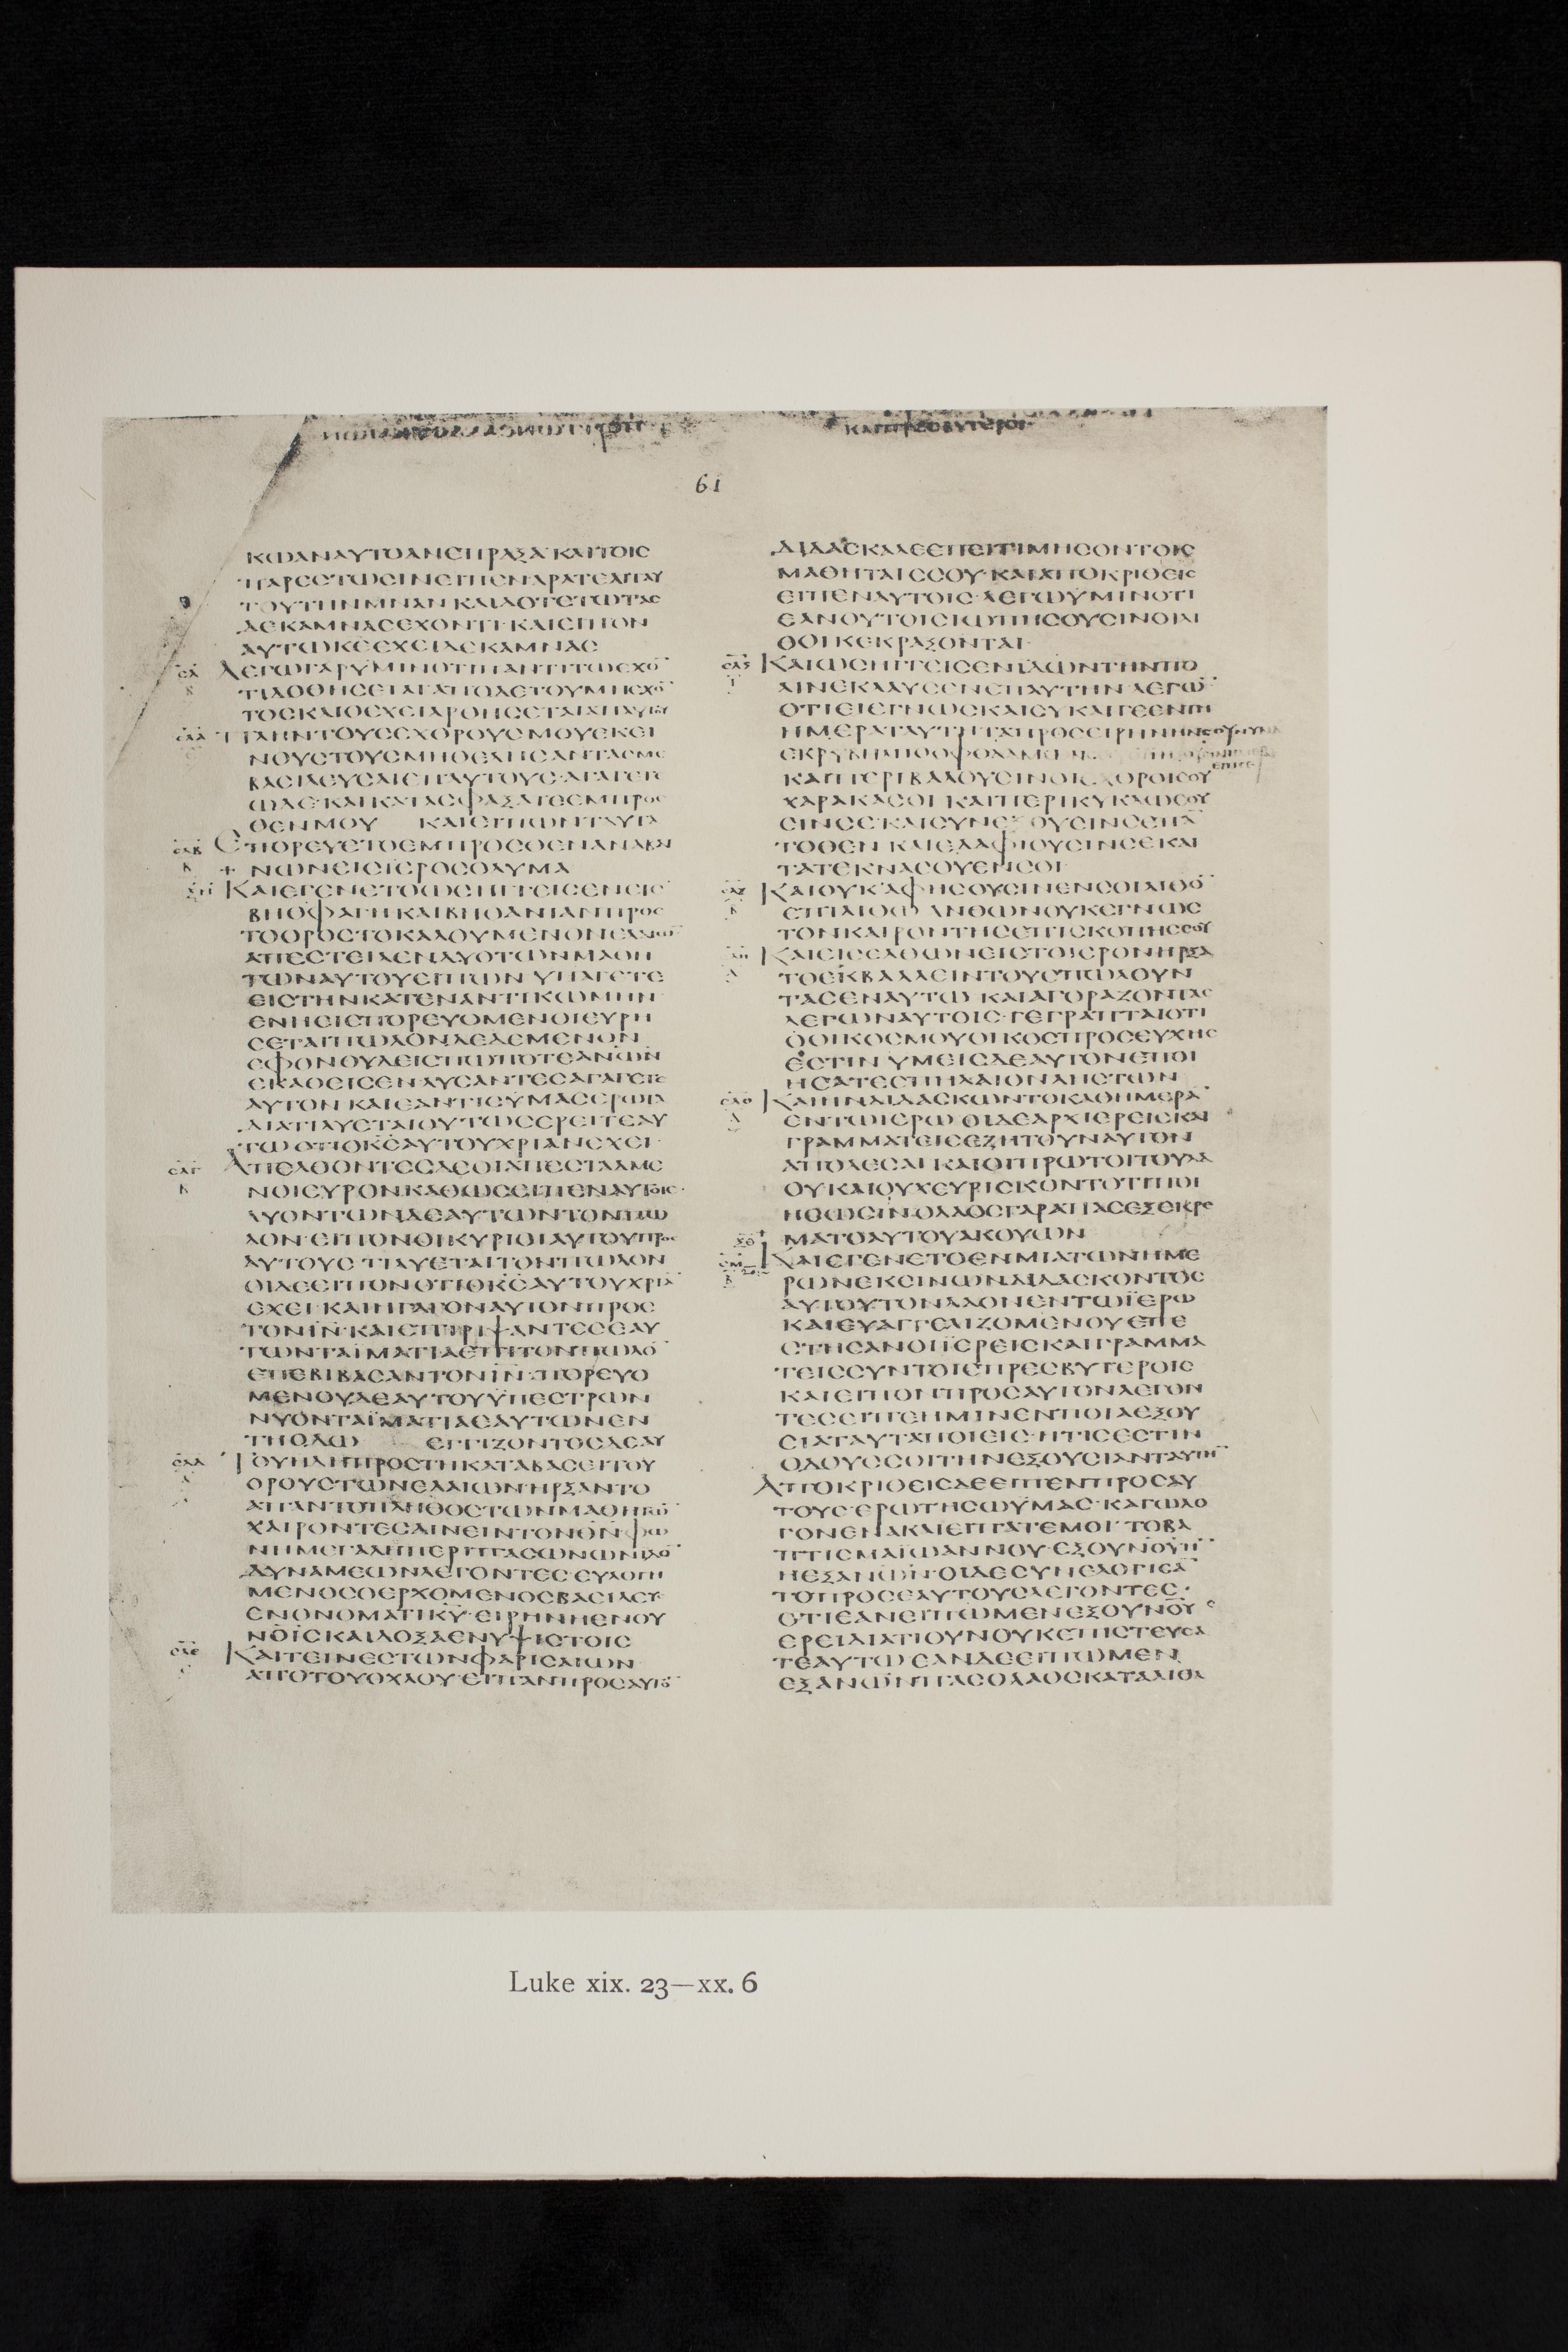 61
ΚΩΑΝΑΥΤΟΑΝΕΠΡΑΞΑ·ΚΑΙΤΟΙϹ
ΠΑΡΕϹΤΩϹΙΝΕΙΠΕΝΑΡΑΤΕΑΠΑΥ
ΤΟΥΤΗΝΜΝΑΝΚΑΙΔΟΤΕΤΩΤΑϹ
ΔΕΚΑΜΝΑϹΕΧΟΝΤΙ·ΚΑΙΕΙΠΟΝ
ΑΥΤΩΚ̅Ε̅ΕΧΕΙΔΕΚΑΜΝΑϹ
ΛΕΓΩΓΑΡΥΜΙΝΟΤΙΠΑΝΤΙΤΩΕΧΟ̅
ΤΙΔΟΘΗϹΕΤΑΙΑΠΟΔΕΤΟΥΜΗΕΧΟ̅
ΤΟϹΚΑΙΟΕΧΕΙΑΡΘΗϹΕΤΑΙΑΠΑΥΤΟΥ
ΠΛΗΝΤΟΥϹΕΧΘΡΟΥϹΜΟΥΕΚΕΙ
ΝΟΥϹΤΟΥϹΜΗΘΕΛΗϹΑΝΤΑϹΜΕ
ΒΑϹΙΛΕΥϹΑΙΕΠΑΥΤΟΥϹ·ΑΓΑΓΕΤΕ
ΩΔΕ·ΚΑΙΚΑΤΑϹΦΑΞΑΤΕΕΜΠΡΟϹ
ΘΕΝΜΟΥ ΚΑΙΕΙΠΩΝΤΑΥΤΑ
ΕΠΟΡΕΥΕΤΟΕΜΠΡΟϹΘΕΝΑΝΑΒΑΙ
ΝΩΝΕΙϹΪΕΡΟϹΟΛΥΜΑ
ΚΑΙΕΓΕΝΕΤΟΩϹΗΓΓΕΙϹΕΝΕΙϹ
ΒΗΘΦΑΓΗΚΑΙΒΗΘΑΝΙΑΝΠΡΟϹ
ΤΟΟΡΟϹΤΟΚΑΛΟΥΜΕΝΟΝΕΛΑΙΩ̅
ΑΠΕϹΤΕΙΛΕΝΔΥΟΤΩΝΜΑΘΗ
ΤΩΝΑΥΤΟΥΕΙΠΩΝ·ΥΠΑΓΕΤΕ
ΕΙϹΤΗΝΚΑΤΕΝΑΝΤΙΚΩΜΗΝ
ΕΝΗΕΙϹΠΟΡΕΥΟΜΕΝΟΙΕΥΡΗ
ϹΕΤΑΙΠΩΛΟΝΔΕΔΕΜΕΝΟΝ
ΕΦΟΝΟΥΔΕΙϹΠΩΠΟΤΕΑΝΩΝ
ΕΚΑΘΕΙϹΕΝΛΥϹΑΝΤΕϹΑΓΑΓΕΤΕ
ΑΥΤΟΝ·ΚΑΙΕΑΝΤΙϹΥΜΑϹΕΡΩΤΑ
ΔΙΑΤΙΛΥΕΤΑΙΟΥΤΩϹΕΡΕΙΤΕΑΥ
ΤΩΟΤΙΟΚ̅Ϲ̅ΑΥΤΟΥΧΡΙΑΝΕΧΕΙ·
ΑΠΕΛΘΟΝΤΕϹΔΕΟΙΑΠΕϹΤΑΛΜΕ
ΝΟΙΕΥΡΟΝ·ΚΑΘΩϹΕΙΠΕΝΑΥΤΟΙϹ·
ΛΥΟΝΤΩΝΔΕΑΥΤΩΝΤΟΝΠΩ
ΛΟΝ·ΕΙΠΟΝΟΙΚΥΡΙΟΙΑΥΤΟΥΠΡΟϹ
ΑΥΤΟΥϹ·ΤΙΛΥΕΤΑΙΤΟΝΠΩΛΟΝ
ΟΙΔΕΕΙΠΟΝΟΤΙΟΚ̅Ϲ̅ΑΥΤΟΥΧΡΙΑ̅
ΕΧΕΙ·ΚΑΙΗΓΑΓΟΝΑΥΤΟΝΠΡΟϹ
ΤΟΝΙ̅Ν̅·ΚΑΙΕΠΙΡΙΨΑΝΤΕϹΕΑΥ
ΤΩΝΤΑΪΜΑΤΙΑΕΠΙΤΟΝΠΩΛΟ̅
ΕΠΕΒΙΒΑϹΑΝΤΟΝΙ̅Ν̅·ΠΟΡΕΥΟ
ΜΕΝΟΥΔΕΑΥΤΟΥΫΠΕϹΤΡΩΝ
ΝΥΟΝΤΑΪΜΑΤΙΑΕΑΥΤΩΝΕΝ
ΤΗΟΔΩ ΕΓΓΙΖΟΝΤΟϹΔΕΑΥ
ΤΟΥΗΔΗΠΡΟϹΤΗΚΑΤΑΒΑϹΕΙΤΟΥ
ΟΡΟΥϹΤΩΝΕΛΑΙΩΝ·ΗΡΞΑΝΤΟ
ΑΠΑΝΤΟΠΛΗΘΟϹΤΩΝΜΑΘΗΤΩ̅
ΧΑΙΡΟΝΤΕϹΑΙΝΕΙΝΤΟΝΘ̅Ν̅ΦΩ
ΝΗΜΕΓΑΛΗΠΕΡΙΠΑϹΩΝΩΝΙΔΟ̅
ΔΥΝΑΜΕΩΝΛΕΓΟΝΤΕϹ·ΕΥΛΟΓΗ
ΜΕΝΟϹΟΕΡΧΟΜΕΝΟϹΒΑϹΙΛΕΥϹ
ΕΝΟΝΟΜΑΤΙΚ̅Υ̅·ΕΙΡΗΝΗΕΝΟΥ
ΝΟΙϹΚΑΙΔΟΞΑΕΝΥΨΙϹΤΟΙϹ
ΚΑΙΤΕΙΝΕϹΤΩΝΦΑΡΙϹΑΙΩΝ
ΑΠΟΤΟΥΟΧΛΟΥ·ΕΙΠΑΝΠΡΟϹΑΥΤΟ̅
ΔΙΔΑϹΚΑΛΕΕΠΕΙΤΙΜΗϹΟΝΤΟΙϹ
ΜΑΘΗΤΑΙϹϹΟΥ·ΚΑΙΑΠΟΚΡΙΘΕΙϹ
ΕΙΠΕΝΑΥΤΟΙϹ·ΛΕΓΩΥΜΙΝΟΤΙ
ΕΑΝΟΥΤΟΙϹΙΩΠΗϹΟΥϹΙΝΟΙΛΙ
ΘΟΙΚΕΚΡΑΞΟΝΤΑΙ
ΚΑΙΩϹΗΓΓΕΙϹΕΝΙΔΩΝΤΗΝΠΟ
ΛΙΝΕΚΛΑΥϹΕΝΕΠΑΥΤΗΝ·ΛΕΓΩ̅
ΟΤΙΕΙΕΓΝΩϹΚΑΙϹΥΚΑΙΓΕΕΝΤΗ
ΗΜΕΡΑΤΑΥΤΗΤΑΠΡΟϹΕΙΡΗΝΗΝ
ΕΚΡΥΒΗΑΠΟΟΦΘΑΛΜΩ
ΚΑΙΠΕΡΙΒΑΛΟΥϹΙΝΟΙΕΧΘΡΟΙϹΟΥ
ΧΑΡΑΚΑϹΟΙ·ΚΑΙΠΕΡΙΚΥΚΛΩϹΟΥ
ϹΙΝϹΕ·ΚΑΙϹΥΝΕΞΟΥϹΙΝϹΕΠΑ̅
ΤΟΘΕΝ·ΚΑΙΕΔΑΦΙΟΥϹΙΝϹΕΚΑΙ
ΤΑΤΕΚΝΑϹΟΥΕΝϹΟΙ
ΚΑΙΟΥΚΑΦΗϹΟΥϹΙΝΕΝϹΟΙΛΙΘΟ̅
ΕΠΙΛΙΘΩΑΝΘΩΝΟΥΚΕΓΝΩϹ
ΤΟΝΚΑΙΡΟΝΤΗϹΕΠΙϹΚΟΠΗϹϹΟΥ
ΚΑΙΕΙϹΕΛΘΩΝΕΙϹΤΟΙΕΡΟΝΗΡΞΑ
ΤΟΕΚΒΑΛΛΕΙΝΤΟΥϹΠΩΛΟΥΝ
ΤΑϹΕΝΑΥΤΩΚΑΙΑΓΟΡΑΖΟΝΤΑϹ
ΛΕΓΩΝΑΥΤΟΙϹ·ΓΕΓΡΑΠΤΑΙΟΤΙ
ΟΟΙΚΟϹΜΟΥΟΙΚΟϹΠΡΟϹΕΥΧΗϹ
ΕϹΤΙΝ·ΥΜΕΙϹΔΕΑΥΤΟΝΕΠΟΙ
ΗϹΑΤΕϹΠΗΛΑΙΟΝΛΗϹΤΩΝ
ΚΑΙΗΝΔΙΔΑϹΚΩΝΤΟΚΑΘΗΜΕΡΑ̅
ΕΝΤΩΙΕΡΩ·ΟΙΔΕΑΡΧΙΕΡΕΙϹΚΑΙ
ΓΡΑΜΜΑΤΕΙϹΕΖΗΤΟΥΝΑΥΤΟΝ
ΑΠΟΛΕϹΑΙ·ΚΑΙΟΙΠΡΩΤΟΙΤΟΥΛΑ
ΟΥ·ΚΑΙΟΥΧΕΥΡΙϹΚΟΝΤΟΤΙΠΟΙ
ΗϹΩϹΙΝ·ΟΛΑΟϹΓΑΡΑΠΑϹΕΞΕΚΡΕ
ΜΑΤΟΑΥΤΟΥΑΚΟΥΩΝ
ΚΑΙΕΓΕΝΕΤΟΕΝΜΙΑΤΩΝΗΜΕ
ΡΩΝΕΚΕΙΝΩΝΔΙΔΑϹΚΟΝΤΟϹ
ΑΥΤΟΥΤΟΝΛΑΟΝΕΝΤΩΪΕΡΩ
ΚΑΙΕΥΑΓΓΕΛΙΖΟΜΕΝΟΥΕΠΕ
ϹΤΗϹΑΝΟΙΪΕΡΕΙϹΚΑΙΓΡΑΜΜΑ
ΤΕΙϹϹΥΝΤΟΙϹΠΡΕϹΒΥΤΕΡΟΙϹ
ΚΑΙΕΙΠΟΝΠΡΟϹΑΥΤΟΝΛΕΓΟΝ
ΤΕϹΕΙΠΕΗΜΙΝΕΝΠΟΙΑΕΞΟΥ
ϹΙΑΤΑΥΤΑΠΟΙΕΙϹ·ΗΤΙϹΕϹΤΙΝ
ΟΔΟΥϹϹΟΙΤΗΝΕΞΟΥϹΙΑΝΤΑΥΤΗ̅
ΑΠΟΚΡΙΘΕΙϹΔΕΕΙΠΕΝΠΡΟϹΑΥ
ΤΟΥϹ·ΕΡΩΤΗϹΩΥΜΑϹ·ΚΑΓΩΛΟ
ΓΟΝΕΝΑΚΑΙΕΙΠΑΤΕΜΟΙ·ΤΟΒΑ
ΠΤΙϹΜΑΪΩΑΝΝΟΥ·ΕΞΟΥΝΟΥΗ̅
ΗΕΞΑΝΩ̅Ν̅·ΟΙΔΕϹΥΝΕΛΟΓΙϹΑ̅
ΤΟΠΡΟϹΕΑΥΤΟΥϹΛΕΓΟΝΤΕϹ·
ΟΤΙΕΑΝΕΙΠΩΜΕΝΕΞΟΥΝΟΥ
ΕΡΕΙΔΙΑΤΙΟΥΝΟΥΚΕΠΙϹΤΕΥϹΑ
ΤΕΑΥΤΩΕΑΝΔΕΕΙΠΩΜΕΝ
ΕΞΑΝΩ̅Ν̅ΠΑϹΟΛΑΟϹΚΑΤΑΛΙΘΑ
Luke xix. 23—xx. 6